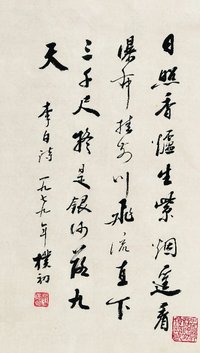 日照香爐生紫烟遥看
瀑布挂前川飛流直下
三千尺疑是銀河落九
天
李白詩一九七九年樸初